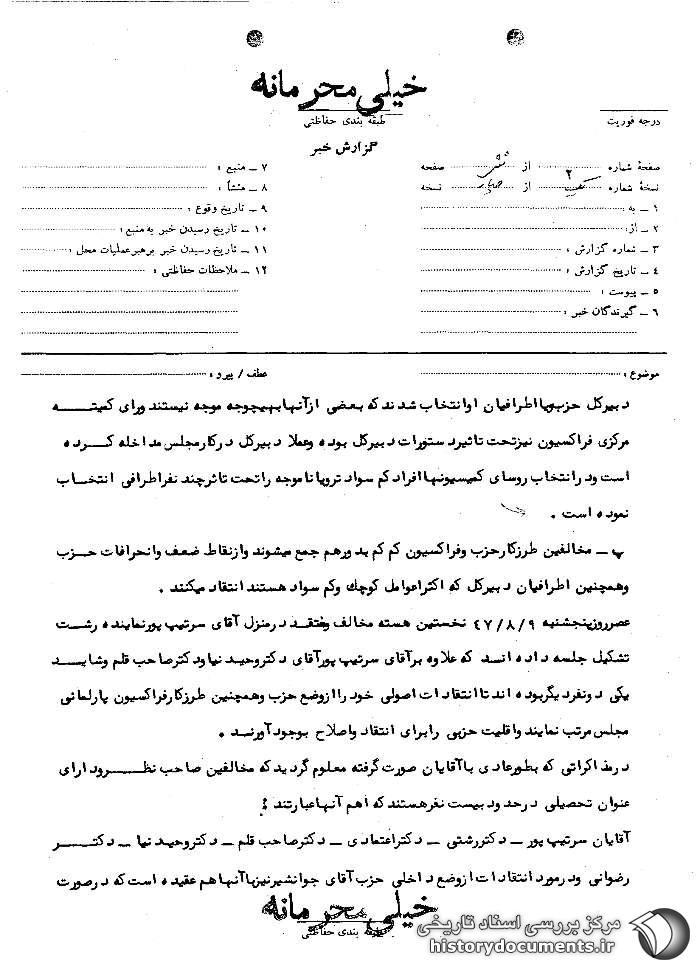 خیلی محرمانه
طبقه بندی حفاظتی
درجه فوریت
گزارش خبر
صفحهٔ شماره ۲ از شش صفحه
نسخهٔ شماره از نسخه
۱ ـ به :
۲ ـ از :
۳ ـ شماره گزارش :
۴ ـ تاریخ گزارش :
۵ ـ پیوست :
۶ ـ گیرندگان خبر :
۷ ـ منبع :
۸ ـ منشأ :
۹ ـ تاریخ وقوع :
۱۰ ـ تاریخ رسیدن خبر به منبع :
۱۱ ـ تاریخ رسیدن خبر برهبر عملیات محل :
۱۲ ـ ملاحظات حفاظتی :
موضوع :
عطف / پیرو :
دبیرکل حزب ویا اطرافیان او انتخاب شدند که بعضی از آنها بهیچوجه موجه نیستند و رای کمیته
مرکزی فراکسیون نیز تحت تاثیر دستورات دبیرکل بوده و عملا دبیرکل در کار مجلس مداخله کرده
است و در انتخاب روسای کمیسیونها افراد کم سواد تر ویا ناموجه را تحت تاثر چند نفر اطرافی انتخاب
نموده است .
پ ـ مخالفین طرز کار حزب و فراکسیون کم کم بدور هم جمع میشوند و از نقاط ضعف و انحرافات حزب
و همچنین اطرافیان دبیرکل که اکثرا عوامل کوچك و کم سواد هستند انتقاد میکنند .
عصر روز پنجشنبه ۴۷/۸/۹ نخستین هسته مخالف و منتقد در منزل آقای سرتیپ پور نماینده رشت
تشکیل جلسه داده اند که علاوه بر آقای سرتیپ پور آقای دکتر وحید نیا و دکتر صاحب قلم و شاید
یکی دو نفر دیگر بوده اند تا انتقادات اصولی خود را از وضع حزب و همچنین طرز کار فراکسیون پارلمانی
مجلس مرتب نمایند و اقلیت حزبی را برای انتقاد و اصلاح بوجود آورند .
در مذاکراتی که بطور عادی با آقایان صورت گرفته معلوم گردید که مخالفین صاحب نظر و دارای
عنوان تحصیلی در حدود بیست نفر هستند که اهم آنها عبارتند :
آقایان سرتیپ پور ـ دکتر رشتی ـ دکتر اعتمادی ـ دکتر صاحب قلم ـ دکتر وحید نیا ـ دکتر
رضوانی و در مورد انتقادات از وضع داخلی حزب آقای جوانشیر نیز با آنها هم عقیده است که در صورت
خیلی محرمانه
طبقه بندی حفاظتی
مرکز بررسی اسناد تاریخی
historydocuments.ir